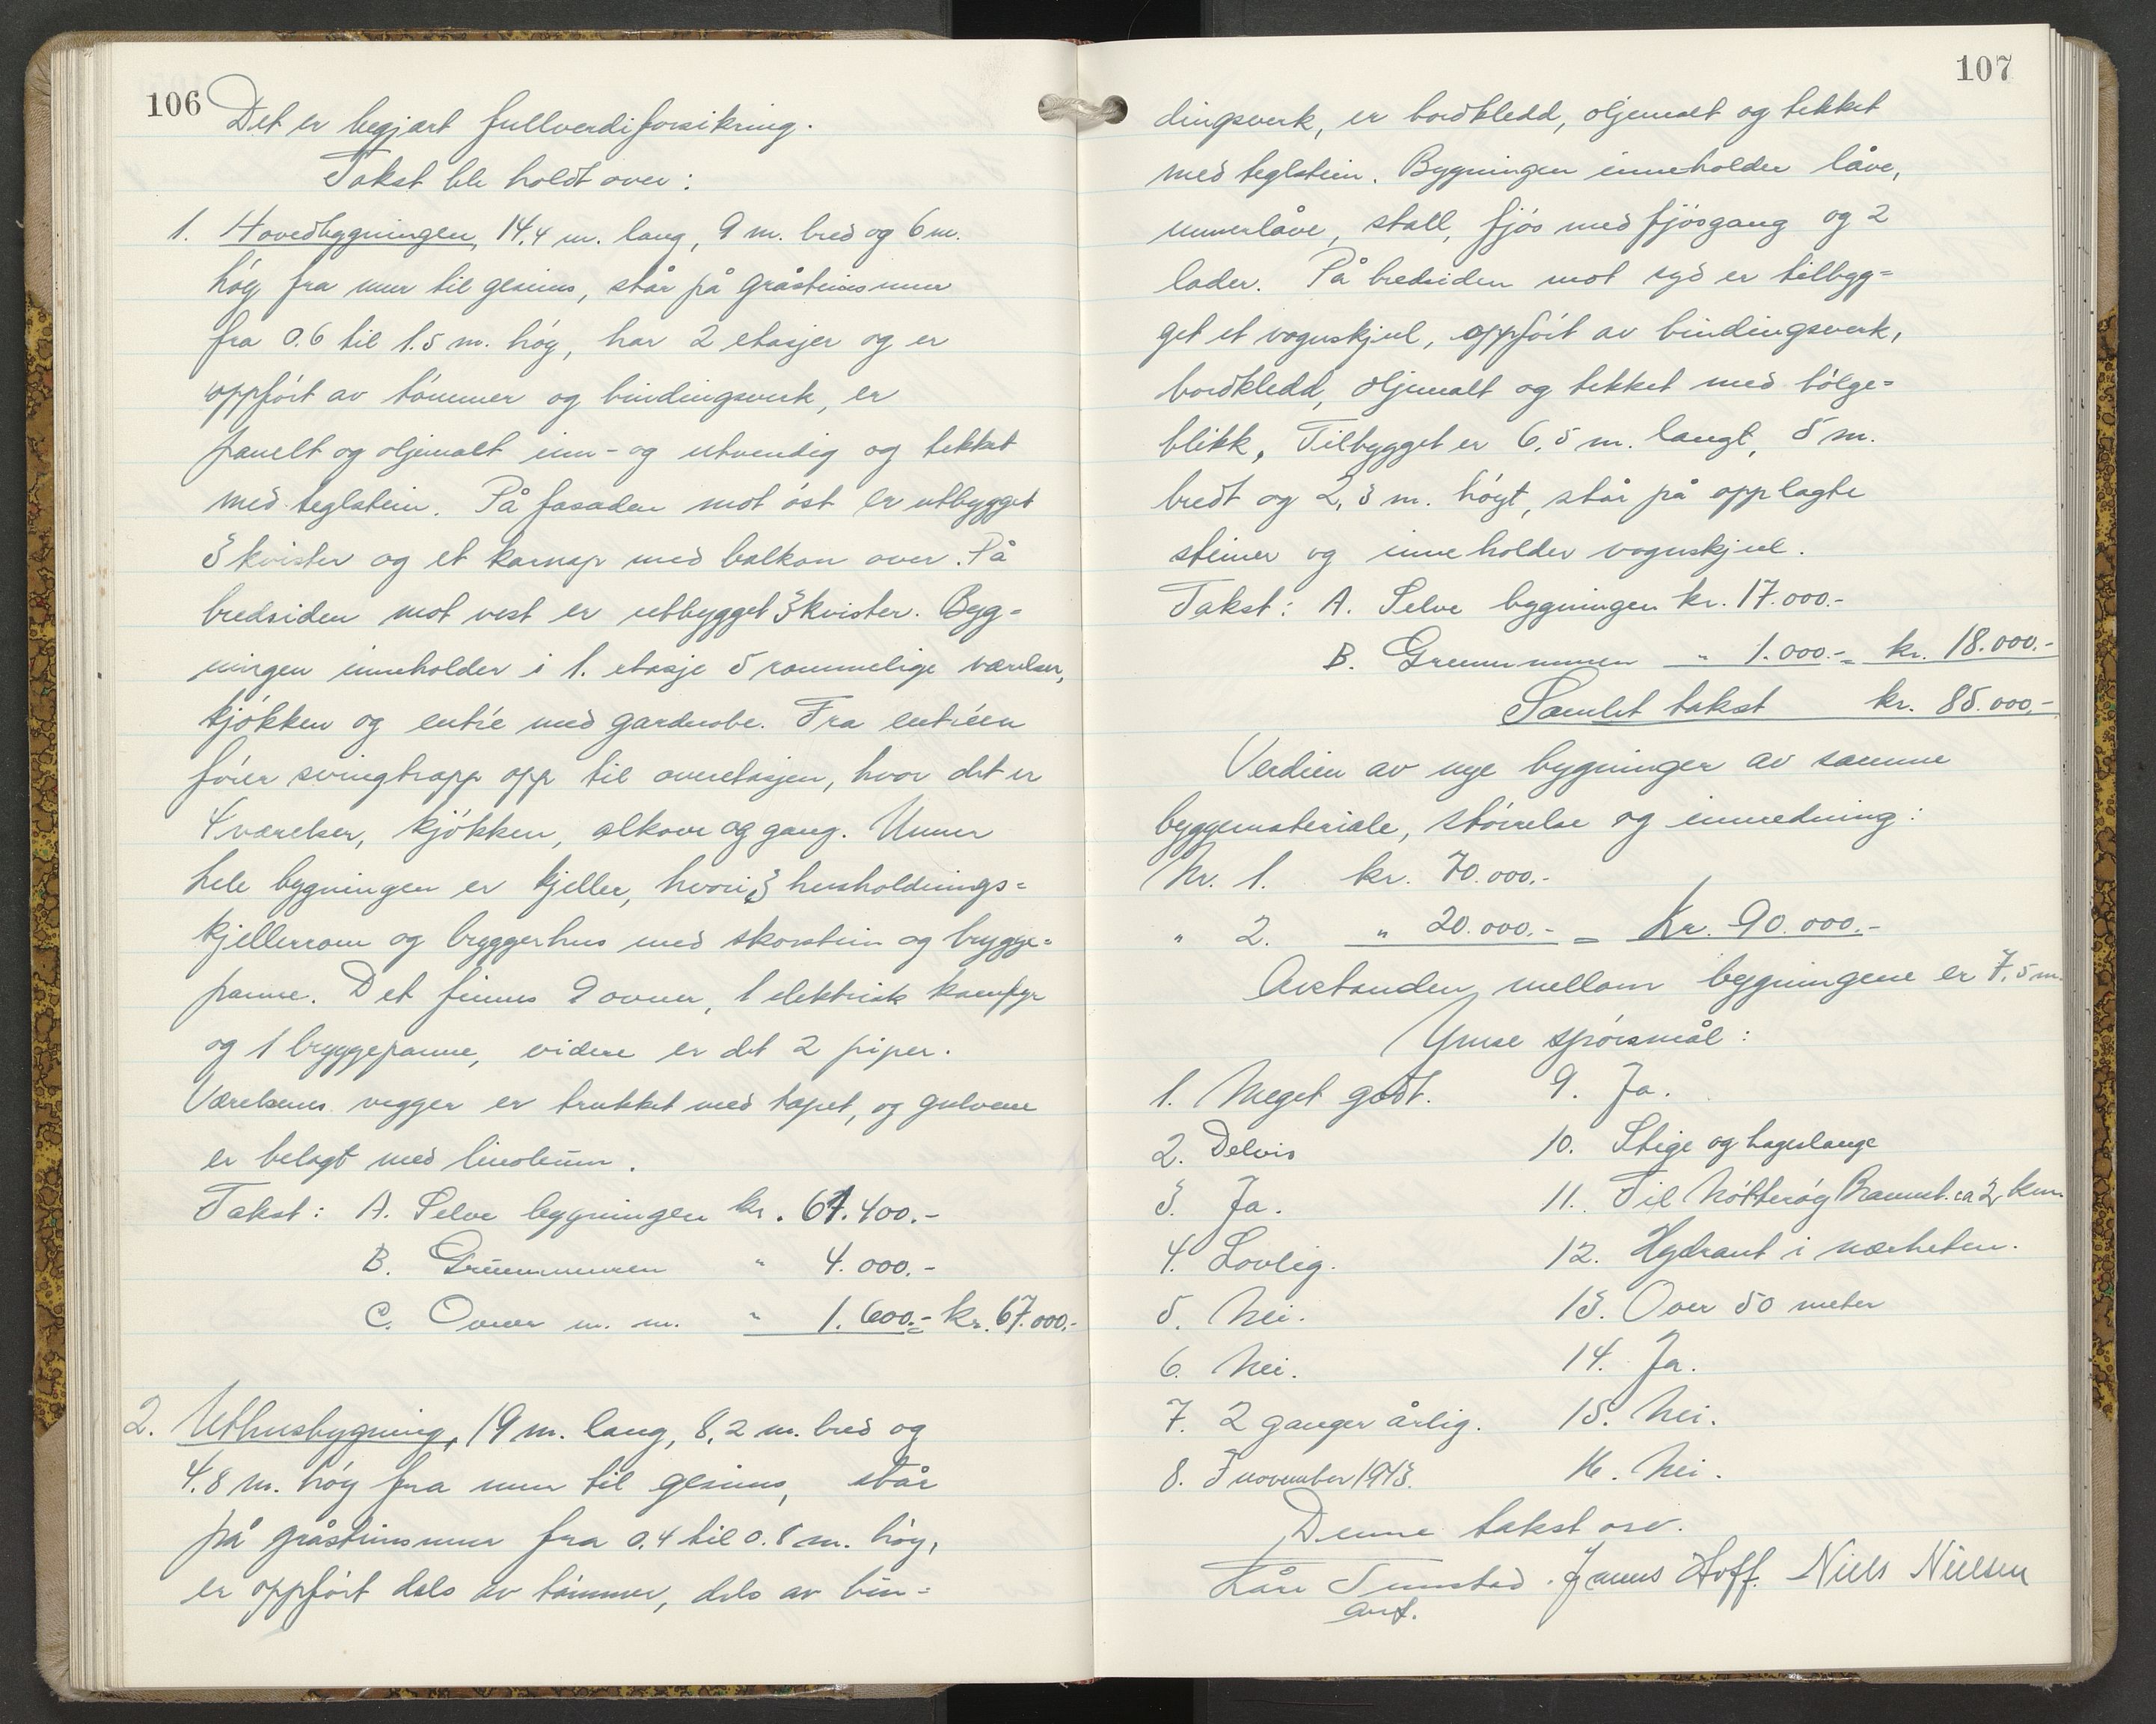 106
Det er begjært fullverdiforsikring.
Takst ble holdt over:
1. Hovedbygningen, 14,4 m. lang, 9 m. bred og 6 m.
høy fra mur til gesims, står på gråsteinsmur
fra 0.6 til 1.5 m. høy, har 2 etasjer og er
oppført av tømmer og bindingsverk, er
panelt og oljemalt inn- og utvendig og tekket
med teglstein. På fasaden mot øst er utbygget
3 kvister og et karnap med balkon over. På
bredsiden mot vest er utbygget 3 kvister. Byg=
ningen inneholder i 1. etasje 5 rommelige værelser,
kjøkken og entré med garderobe. Fra entréen
fører svingtrapp opp til overetasjen, hvor det er
4 værelser, kjøkken, alkove og gang. Under
hele bygningen er kjeller, hvori 3 husholdnings=
kjellerrom og bryggerhus med skorstein og brygge=
panne. Det finnes 9 ovner, 1 elektrisk komfyr
og 1 bryggepanne, videre er det 2 piper.
Værelsenes vegger er trukket med tapet, og gulvene
er belagt med linoleum.
Takst: A. Selve bygningen kr. 61.400.-
B. Grunnmuren " 4.000.-
C. Ovner m. m. " 1.600.- = kr. 67.000.-
2. Uthusbygning, 19 m. lang, 8,2 m. bred og
4.8 m. høy fra mur til gesims, står
på gråsteinsmur fra 0.4 til 0.8 m. høy,
er oppført dels av tømmer, dels av bin=
107
dingsverk, er bordkledd, oljemalt og tekket
med teglstein. Bygningen inneholder låve,
unnerlåve, stall, fjøs med fjøsgang og 2
lader. På bredsiden mot syd er tilbyg=
get et vognskjul, oppført av bindingsverk,
bordkledd, oljemalt og tekket med bølge=
blikk. Tilbygget er 6,5 m. langt, 5 m.
bredt og 2,3 m. høyt, står på opplagte
steiner og inneholder vognskjul.
Takst: A. Selve bygningen kr. 17.000.-
B. Grunnmuren " 1.000.- = kr. 18.000.-
Samlet takst kr. 85.000.-
Verdien av nye bygninger av samme
byggemateriale, størrelse og innredning:
Nr. 1. kr. 70.000.-
" 2. " 20.000.- = Kr. 90.000.-
Avstanden mellom bygningene er 7,5 m.
Ymse spørsmål:
1. Meget godt. 9. Ja.
2. Delvis 10. Stige og hageslange
3. Ja. 11. Til Nøtterøy Brannst. ca 2 km
4. Lovlig. 12. Hydrant i nærheten.
5. Nei. 13. Over 50 meter
6. Nei. 14. Ja.
7. 2 ganger årlig. 15. Nei.
8. I november 1943. 16. Nei.
Denne takst osv.
Kåre Tunstad. Hoff. Niels Nielsen